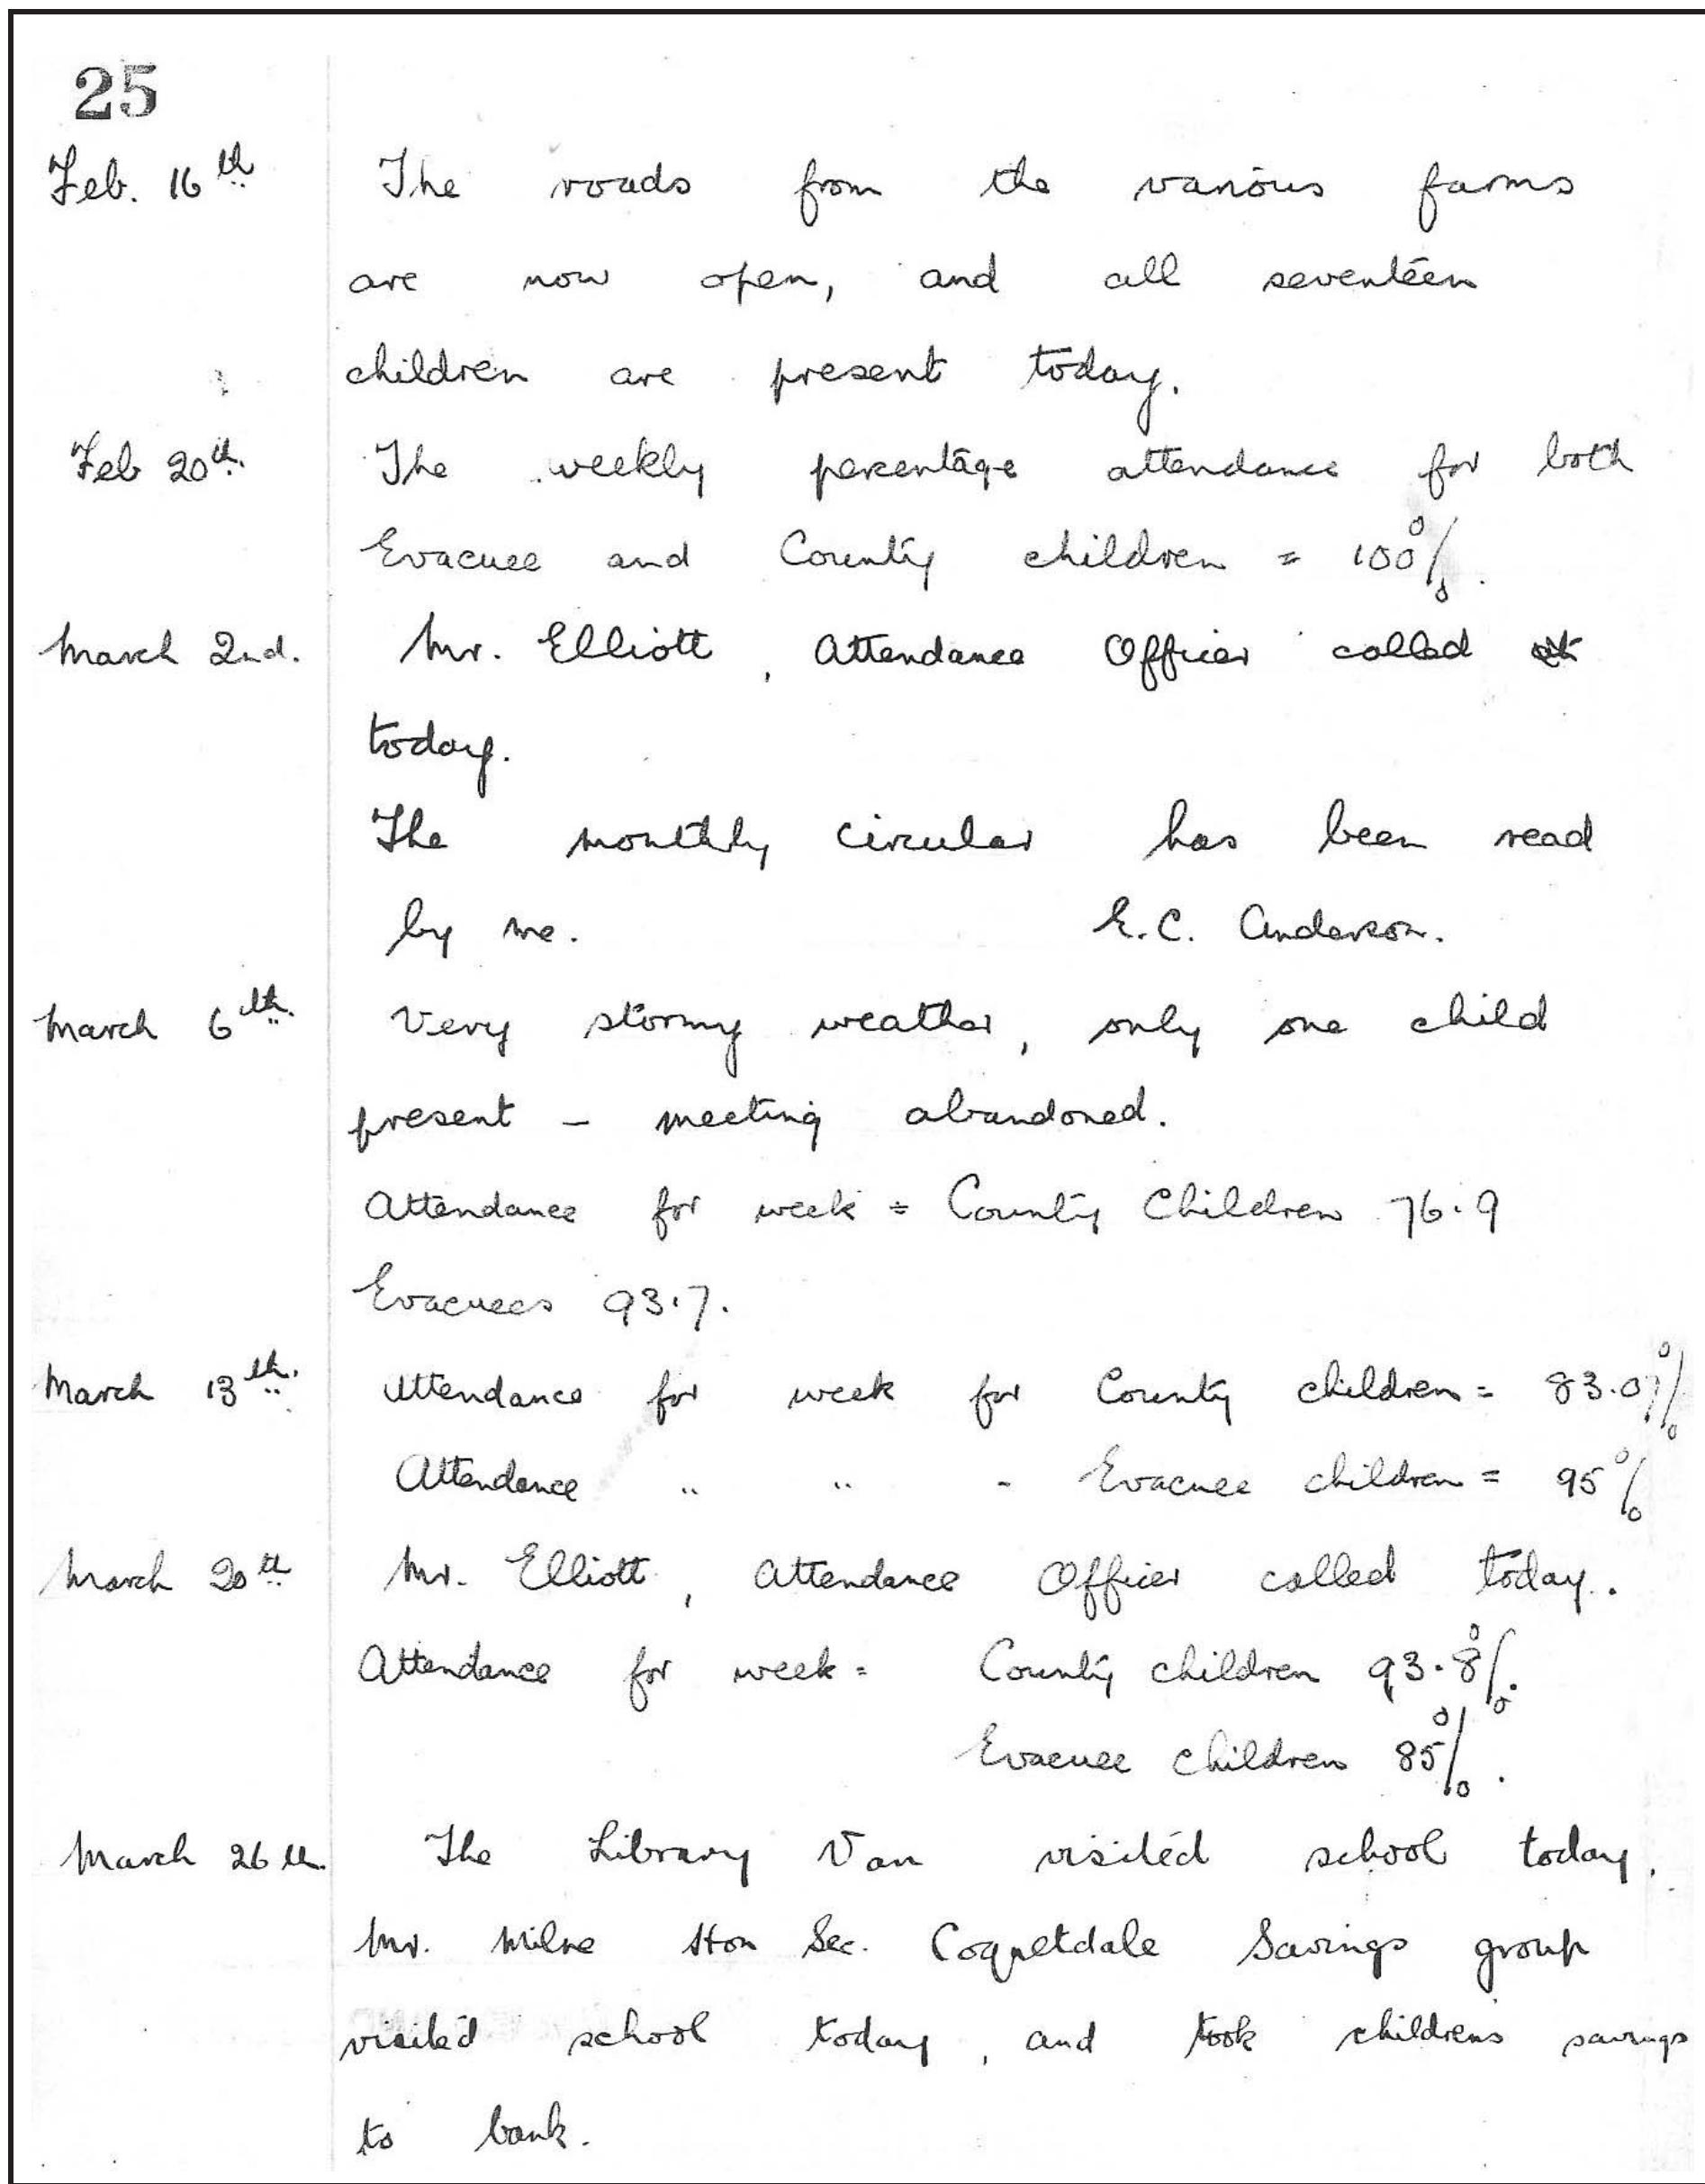 25
Feb. 16th The roads from the various farms
are now open, and all seventeen
children are present today.
Feb 20th. The weekly percentage attendance for both
Evacuee and County children = 100%.
March 2nd. Mr. Elliott, Attendance Officer called
today.
The monthly circular has been read
by me. E.C. Anderson.
March 6th. Very stormy weather, only one child
present - meeting abandoned.
Attendance for week = County Children 76.9
Evacuees 93.7.
March 13th. Attendance for week for County children = 83.07%
Attendance " " - Evacuee children = 95%
March 20th Mr. Elliott, Attendance Officer called today.
Attendance for week = County children 93.8%.
Evacuee children 85%.
March 26th. The Library Van visited school today.
Mr. Milne Hon Sec. Coquetdale Savings group
visited school today, and took childrens savings
to bank.